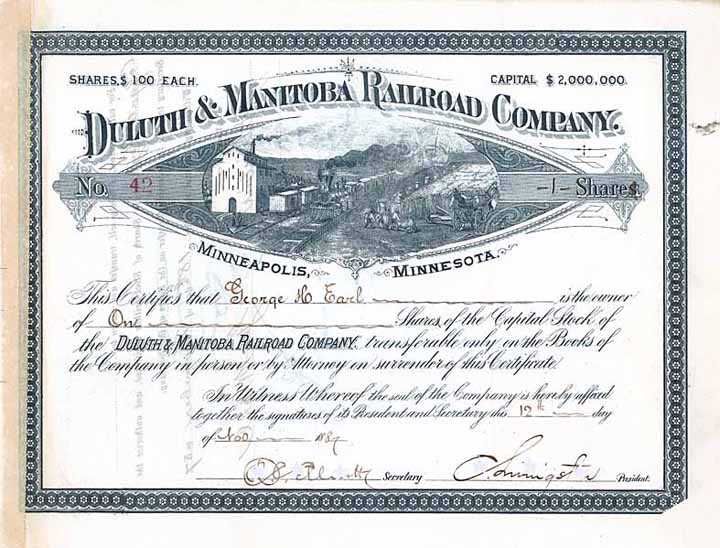 SHARES, $ 100 EACH. CAPITAL $ 2,000,000.
DULUTH & MANITOBA RAILROAD COMPANY.
No. 42 -1- Shares
MINNEAPOLIS, MINNESOTA.
This Certifies that George H. Earl is the owner
of One Shares of the Capital Stock of
the DULUTH & MANITOBA RAILROAD COMPANY. transferable only on the Books of
the Company in person or by Attorney on surrender of this Certificate.
In Witness Whereof the seal of the Company is hereby affixed
together the signatures of its President and Secretary this 12th day
of Nov 1887
Secretary President.